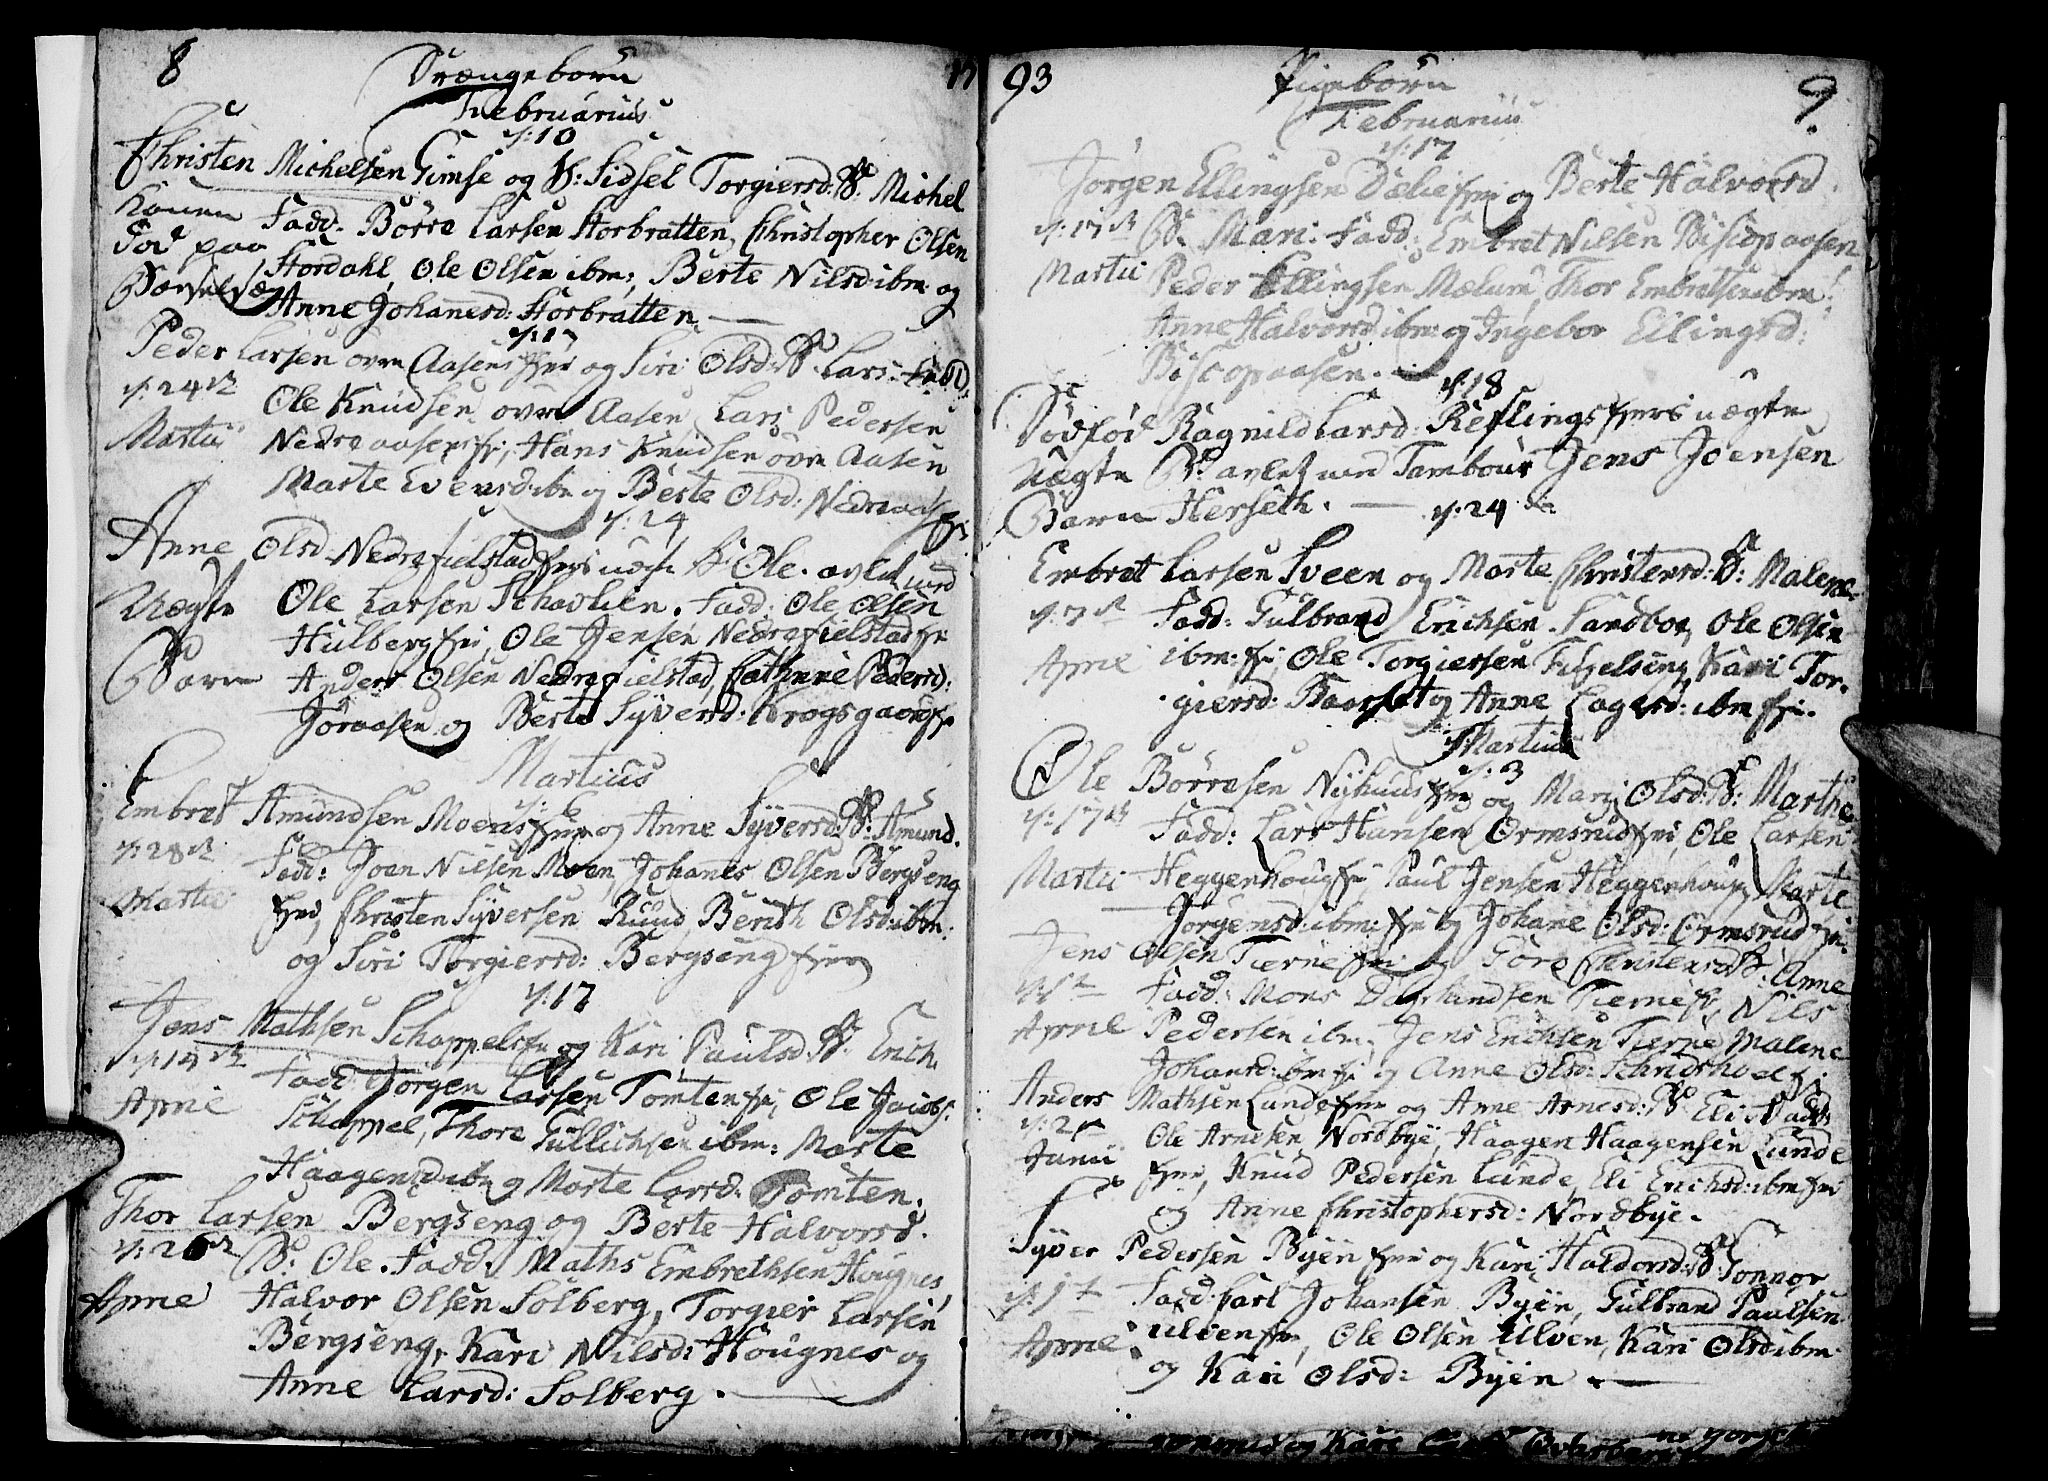 8 Drængebørn 17
Februarius
d: 10
Christen Michelsen Gimse og H: Sidsel Torgiersd: B: Michel
Konen Fadd. Børre Larsen Storbratten, Christopher Olsen
død paa Stordahl, Ole Olsen ibm:, Berte Nilsd: ibm og
Barselsæng Anne Johanesd: Storbratten.
d: 17
Peder Larsen øvre Aasens og Siri Olsd: B. Lars. Fadd.
d: 24de Ole Knudsen øvre Aasen Lars Pedersen
Martii Nedre aasens, Hans Knudsen øvre Aasen
Marte Evensd: ibm og Berte Olsd: Nedre
d: 24
Anne Olsd. Nedre Fielstad uægte B: Ole. avlet med
Uægte Ole Larsen Schavlien. Fadd: Ole Olsen
Hulberg, Ole Jensen Nedre fielstad
Barn Anders Olsen Nedre fielstad, Cathrine Pedersd:
Joraasen og Berte Syversd: Krogsgaard
Martius
d: 6
Embret Amundsen Moens og Anne Syversd: B: Amund.
d: 28de Fadd: Joen Nilsen Moen, Johanes Olsen Bergseng
Martii Christen Syversen Ruud, Berith Olsd: ibm:
og Siri Torgiersd: Bergseng
d: 17
Jens Mathsen Schappels og Kari Paulsd: B: Erich.
d: 14de Fadd: Jørgen Larsen Tomten, Ole Jacobs:
Aprie Schappel, Thore Gullichsen ibm: Marte
Haagensd: ibm og Marte Larsd. Tomten.
Thor Larsen Bergseng og Berte Halvorsd.
d: 26de B: Ole. Fadd. Maths Embrethsen Hougnes,
Aprie Halvor Olsen Solberg, Torgier Larsen
Bergseng, Kari Nilsd: Hougnes og
Anne Larsd: Solberg.
93 Pigebørn 9
Februarius
d: 17
Jørgen Ellingsen Dælie og Berte Halvorsd.
d: 17de B. Mari. Fadd: Embret Nilsen Biscopaasen
Martii Peder Ellingsen Mælum, Thor Embretsen ibm:
Anne Halvorsd: ibm: og Ingebor Ellingsd:
Biscopaasen.
d: 18
Dødfød Ragnild Larsd. Reflings uægte
Uægte B: avlet med Tambour Jens Joensen
Barn Herseth.
d: 24
Embret Larsen Sveen og Marte Christensd: B: Malene.
d: 7de Fadd: Gulbrand Erichsen Sandboe, Ole Olsen
Aprie ibm:, Ole Torgiersen Fugelseng, Kari Tor-
giersd: Baarset og Anne Lagesd: ibm.
Martius
d: 3
Ole Børresen Nyhuus og Mari Olsd: B: Marthe
d: 17de Fadd: Lars Hansen Ormsrud, Ole Larsen
Martii Heggenhoug, Paul Jensen Heggenhoug, Marte
Jørgensd: ibm: og Johane Olsd: Ormsrud
Jens Olsen Tierne og Gøre Christensd: B: Anne
Fadd: Mons Tierne, Nils
Aprie Pedersen ibm. Jens Erichsen Tierne Malene
Johansd: ibm og Anne Olsd:
Anders Mathsen Lunde og Anne Arnesd: B: Eli. Fadd:
Ole Arnesen Nordbye, Haagen Haagensen Lunde
Junii Knud Pedersen Lunde, Eli Erichsd: ibm
og Anne Christophersd: Nordbye.
Syver Pedersen Byen og Kari Haldorsd: B: Gonnor
Fadd: Carl Johansen Byen, Gulbrand Paulsen
Aprie: Ulven, Ole Olsen Ulven, Kari Olsd: ibm:
og Kari Olsd: Byen.